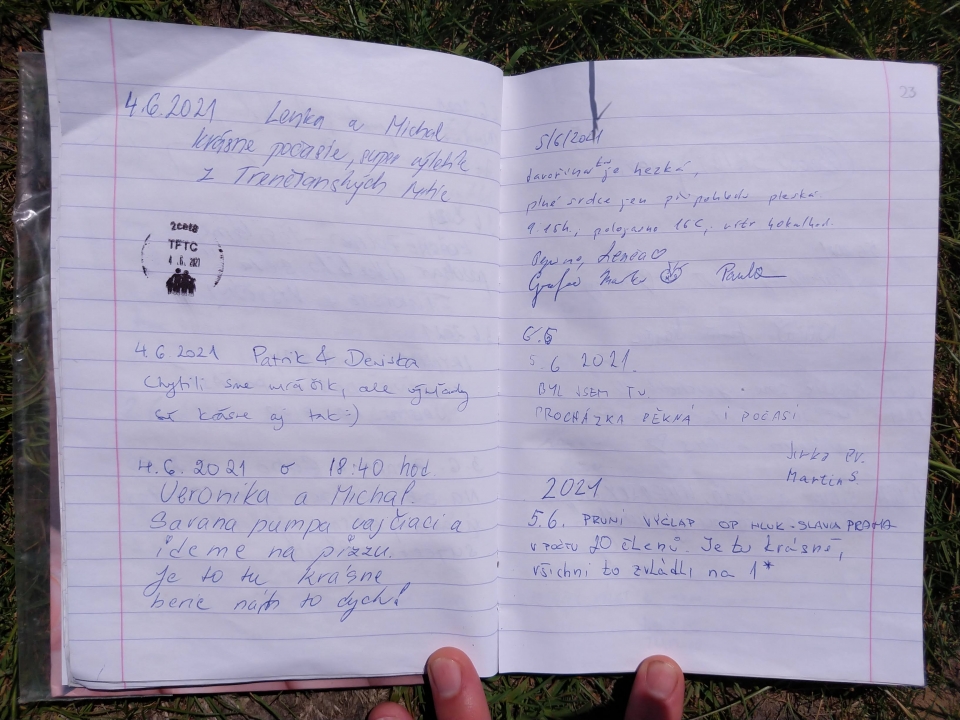 4.6.2021 Lenka a Michal
krásne počasie, super
z Trenčianských
2cets
TFTC
4.6.2021
4.6 2021 Patrik & Deniska
Chytili sme mráčik, ale výhľady
sú krásne aj tak :)
4.6.2021 o 18:40 hod.
Veronika a Michal.
Savana pumpa vajčiaci a
ideme na pizzu.
Je to tu krásne
berie nám to dych!
23
5/6/2021
je hezká,
plné srdce jen při pohledu pleská.
9.15h, polojasno 16C, vítr
Lenda ♡
Paula
6.6
5.6 2021.
BYL JSEM TU
PROCHÁZKA PĚKNÁ I POČASÍ
Jirka
Martin S.
2021
5.6. PRVNÍ VÝČLAP OP HLUK - SLAVIA PRAHA
v počtu 20 členů. Je tu krásně,
všichni to zvládli na 1*